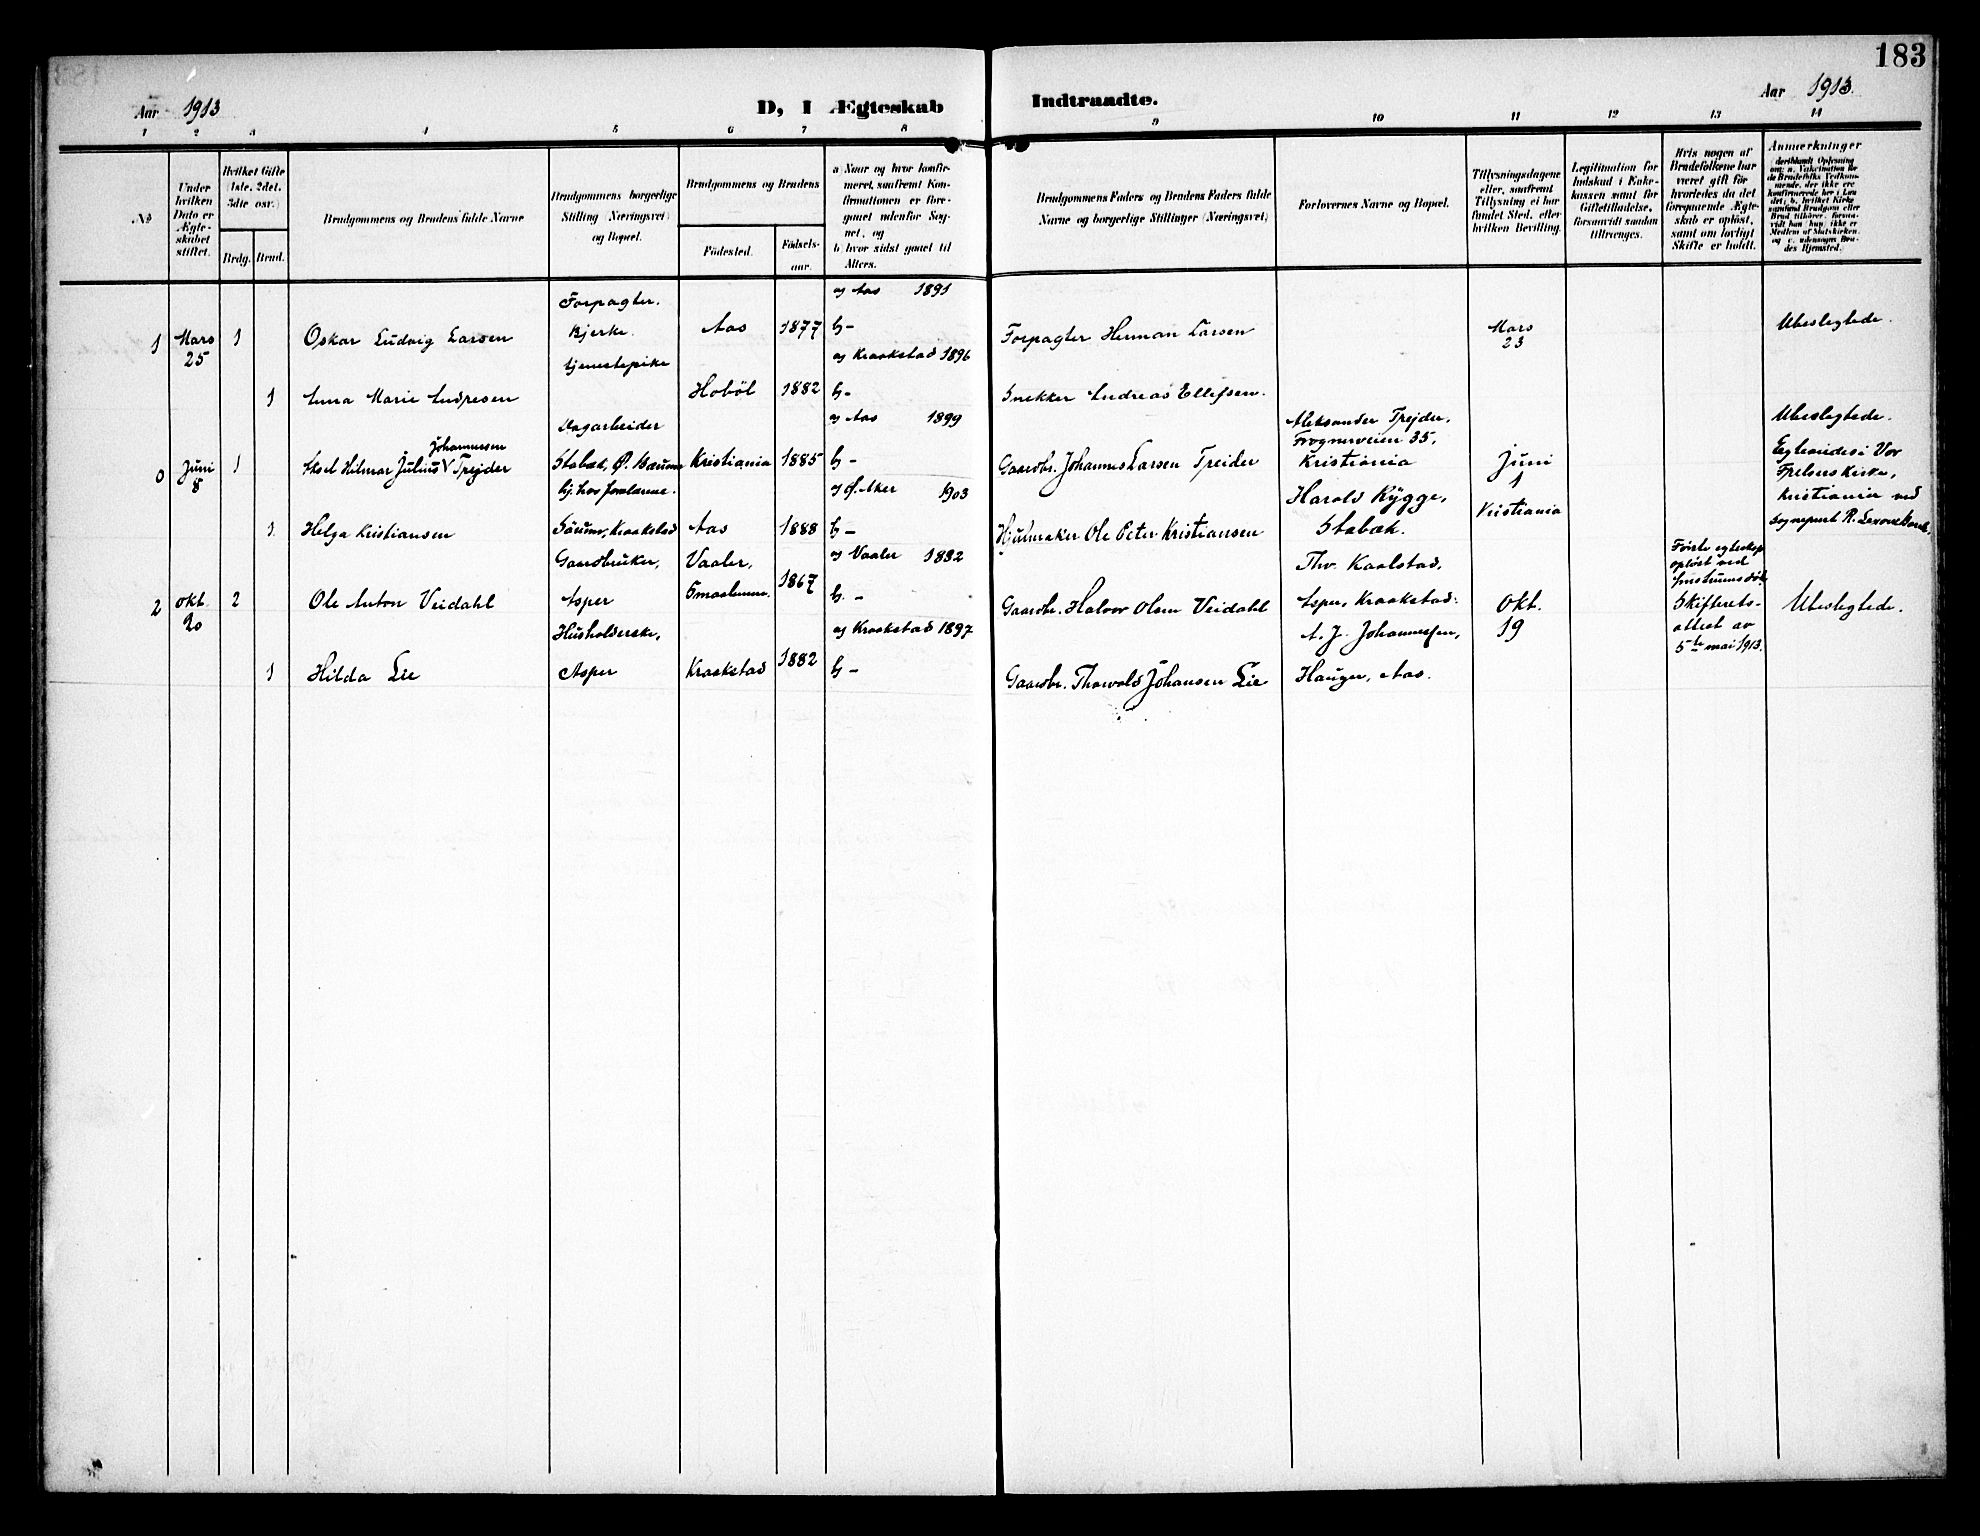 183
Aar 1913
D, I Ægteskab
Indtraadte.
Aar 1913.
1 2 3 4 5 6 7 8 9 10 11 12 13 14
No
Under
hvilken
Dato er
Ægte-
skabet
stiftet.
Hvilket Gifte
(1ste, 2det,
3die osv.)
Brdg. Brud.
Brudgommens og Brudens fulde Navne
Brudgommens borgerlige
Stilling (Næringsvei)
og Bopæl.
Brudgommens og Brudens
Födested.
Födsels-
aar.
a) Naar og hvor konfir-
meret, saafremt Kon-
firmationen er fore-
gaaet udenfor Sog-
net, og
b) hvor sidst gaaet til
Alters.
Brudgommens Faders og Brudens Faders fulde
Navne og borgerlige Stillinger (Næringsvei)
Forlovernes Navne og Bopæl.
Tillysningsdagene
eller, saafremt
Tillysning ei har
fundet Sted, efter
hvilken Bevilling.
Legitimation for
Indskud i Enke-
kassen samt for
Giftetilladelse,
forsaavidt saadan
tiltrænges.
Hvis nogen af
Brudefolkene har
været gift för
hvorledes da det
foregaaende Ægte-
skab er oplöst,
samt om lovligt
Skifte er holdt.
Anmærkninger
(deriblandt Oplysning
om: a. Vakcination for
de Brudefolks Vedkom-
mende, der ikke ere
konfirmerede her i Lan-
det; b. hvilket Kirke-
samfund Brudgom eller
Brud tilhörer, forsaa-
vidt han (hun) ikke er
Medlem af Statskirken,
og c. udensogns Bru-
des Hjemsted.
1 Mars 25 1
Oskar Ludvig Larsen
Forpagter.
Bjerke.
Aas
1877
a) Aas 1891
b) -
Forpagter Herman Larsen
Mars
23
Ubeslegtede.
1
Anna Marie Andresen
tjenestepike
Hoböl
1882
a) Kraakstad 1896
b) -
Snekker Andreas Ellefsen.
0 Juni 8 1
Johannessen
Aksel Hilmar Julius V Trejder
Dagarbeider
Stabæk, Ø. Bærum
Kristiania
1885
a) Aas 1899
b) -
Gaardbr. Johannes Larsen Treider
Aleksander Trejder,
Frognerveien 35,
Kristiania
Juni
1
Kristiania
Ubeslegtede.
Egteviedes i Vor
Frelsers Kirke,
Kristiania ved
sogneprest R.
1.
Helga Kristiansen
hj. hos forældrene.
Kraakstad
Aas
1888
a) Ø. Aker 1903
b) -
Hjulmaker Ole Peter Kristiansen
Harald Rygge,
Stabæk.
2 Okt. 20 2
Ole Anton Veidahl
Gaardbruker,
Asper
Vaaler,
Smaalenene.
1867
a) Vaaler 1882
b) -
Gaardbr. Halvor Olsen Veidahl
Thv. Kaalstad,
Asper, Kraakstad.
Okt.
19
Første egteskap
opløst ved
hustruens död.
Skifterets-
attest av
5te mai 1913.
Ubeslegtede.
1
Hilda Lie
Husholderske,
Asper
Kraakstad
1882
a) Kraakstad 1897
b) -
Gaardbr. Thorvald Johansen Lie
A. J. Johannessen,
Hauger, Aas.